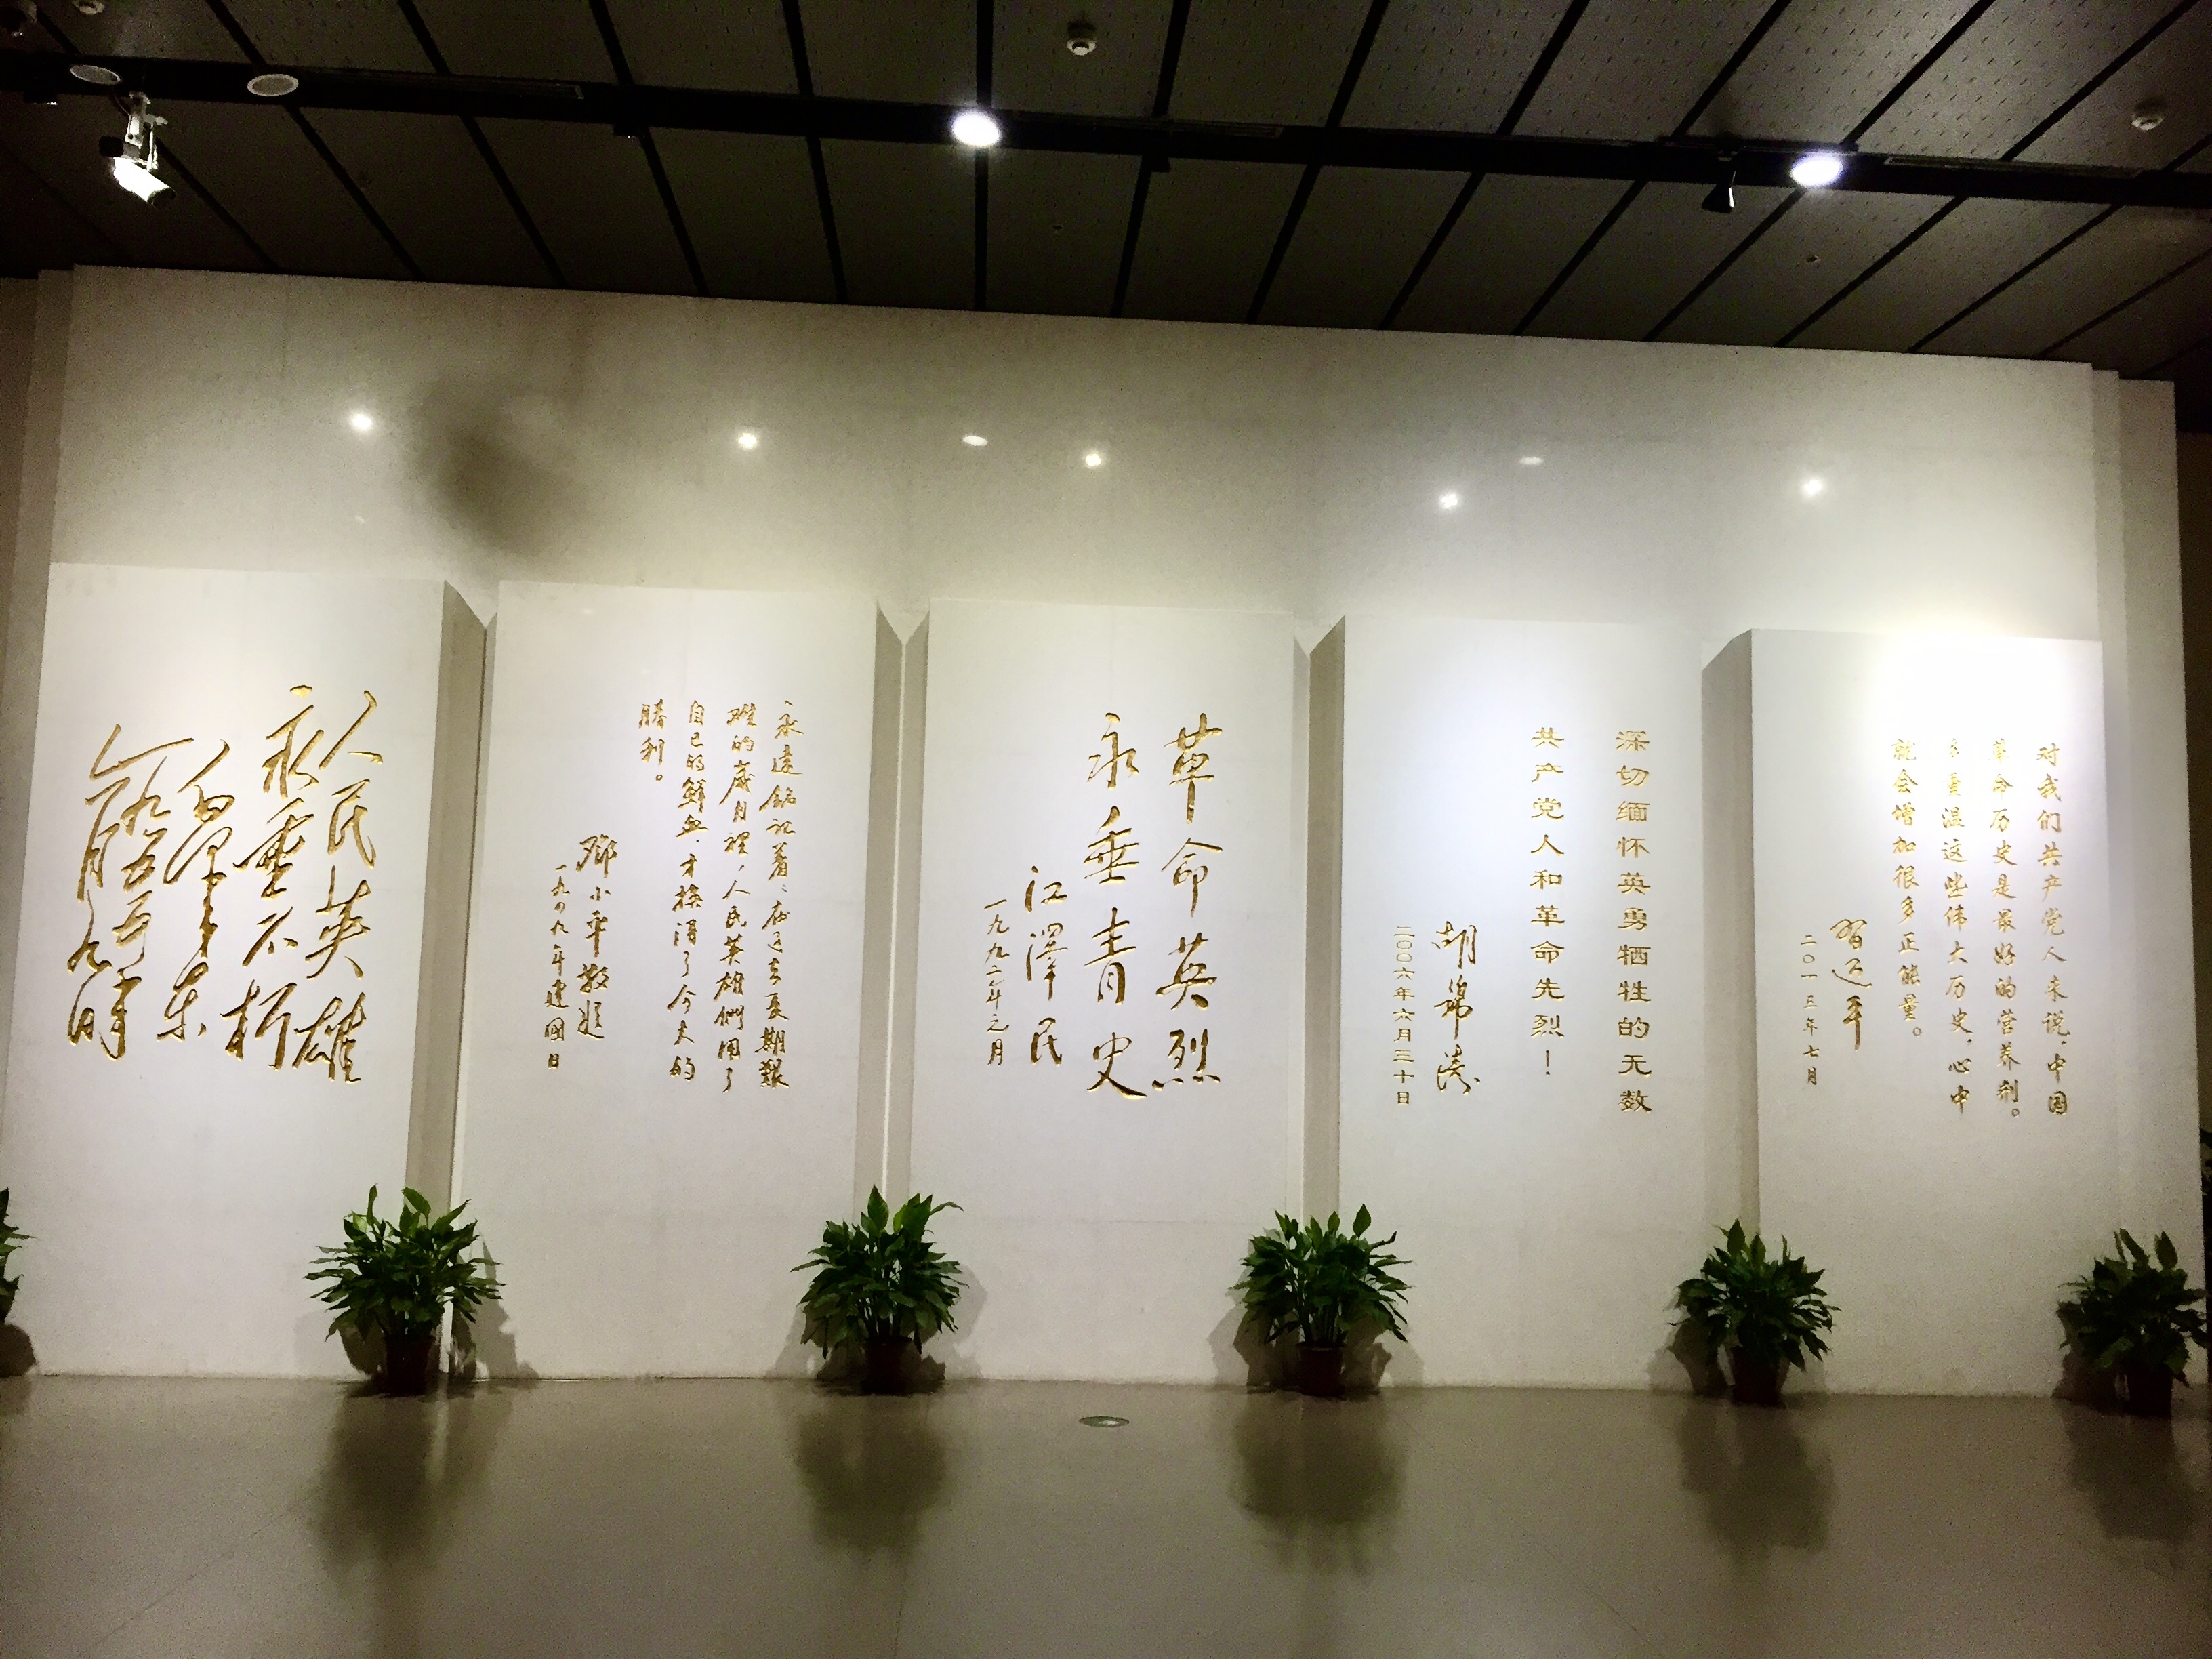 人民英雄
永垂不朽
毛泽东
永遠銘記着：在过去長期艱
難的歲月裡，人民英雄們用了
自己的鮮血，才換得了今天的
勝利。
鄧小平敬題
一九四九年建國日
革命英烈
永垂青史
江澤民
一九九二年元月
深切缅怀英勇牺牲的无数
共产党人和革命先烈！
胡锦涛
二〇〇六年六月三十日
对我们共产党人来说，中国
革命历史是最好的营养剂。
多重温这些伟大历史，心中
就会增加很多正能量。
習近平
二〇一三年七月